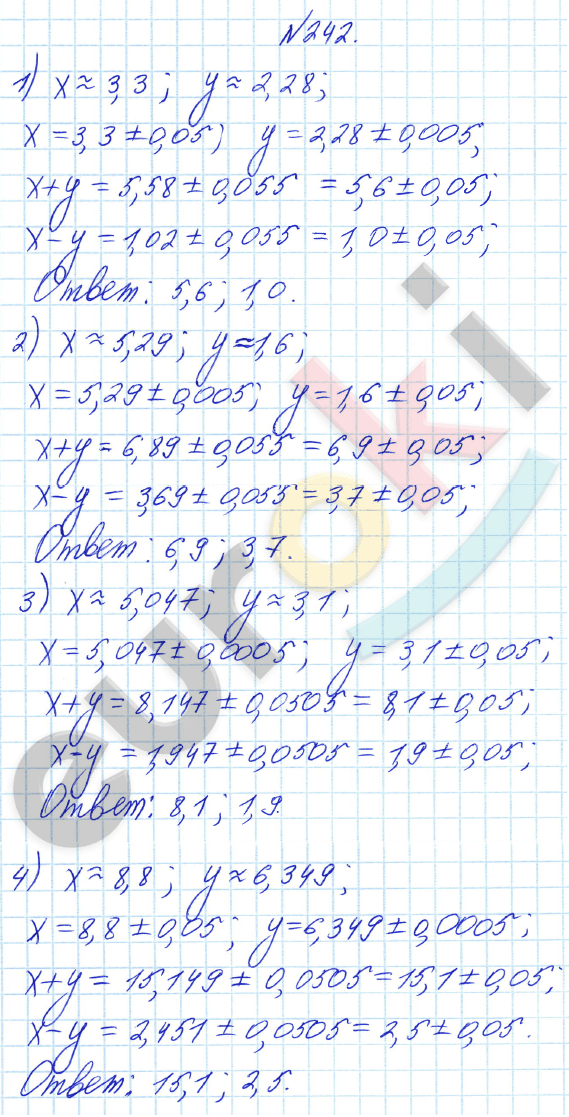 №242.
1) x ≈ 3,3; y ≈ 2,28;
x = 3,3 ± 0,05; y = 2,28 ± 0,005;
x+y = 5,58 ± 0,055 = 5,6 ± 0,05;
x-y = 1,02 ± 0,055 = 1,0 ± 0,05;
Ответ: 5,6; 1,0.
2) x ≈ 5,29; y ≈ 1,6;
x = 5,29 ± 0,005; y = 1,6 ± 0,05;
x+y = 6,89 ± 0,055 = 6,9 ± 0,05;
x-y = 3,69 ± 0,055 = 3,7 ± 0,05;
Ответ: 6,9; 3,7.
3) x ≈ 5,047; y ≈ 3,1;
x = 5,047 ± 0,0005; y = 3,1 ± 0,05;
x+y = 8,147 ± 0,0505 = 8,1 ± 0,05;
x-y = 1,947 ± 0,0505 = 1,9 ± 0,05;
Ответ: 8,1; 1,9.
4) x ≈ 8,8; y ≈ 6,349;
x = 8,8 ± 0,05; y = 6,349 ± 0,0005;
x+y = 15,149 ± 0,0505 = 15,1 ± 0,05;
x-y = 2,451 ± 0,0505 = 2,5 ± 0,05.
Ответ: 15,1; 2,5.
euroki